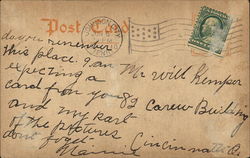 Post Card
do you remember
this place. I am
expecting a
card from you
and my part
of the pictures
dont forget.
Mamie
Mr Will Kemper
82 Carew Building
Cincinnati O.